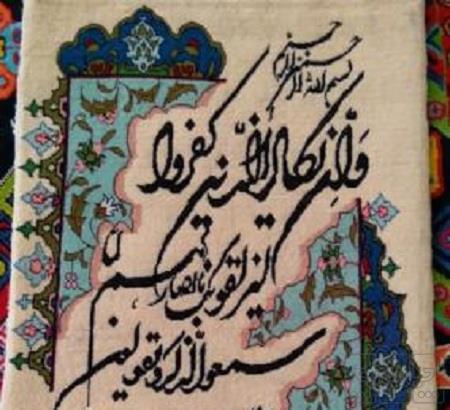 بسم الله الرحمن الرحیم
وَاِن یکاد الذین کفروا
لیزلقونک بابصارهم
لما سمعوا الذکر و یقولون